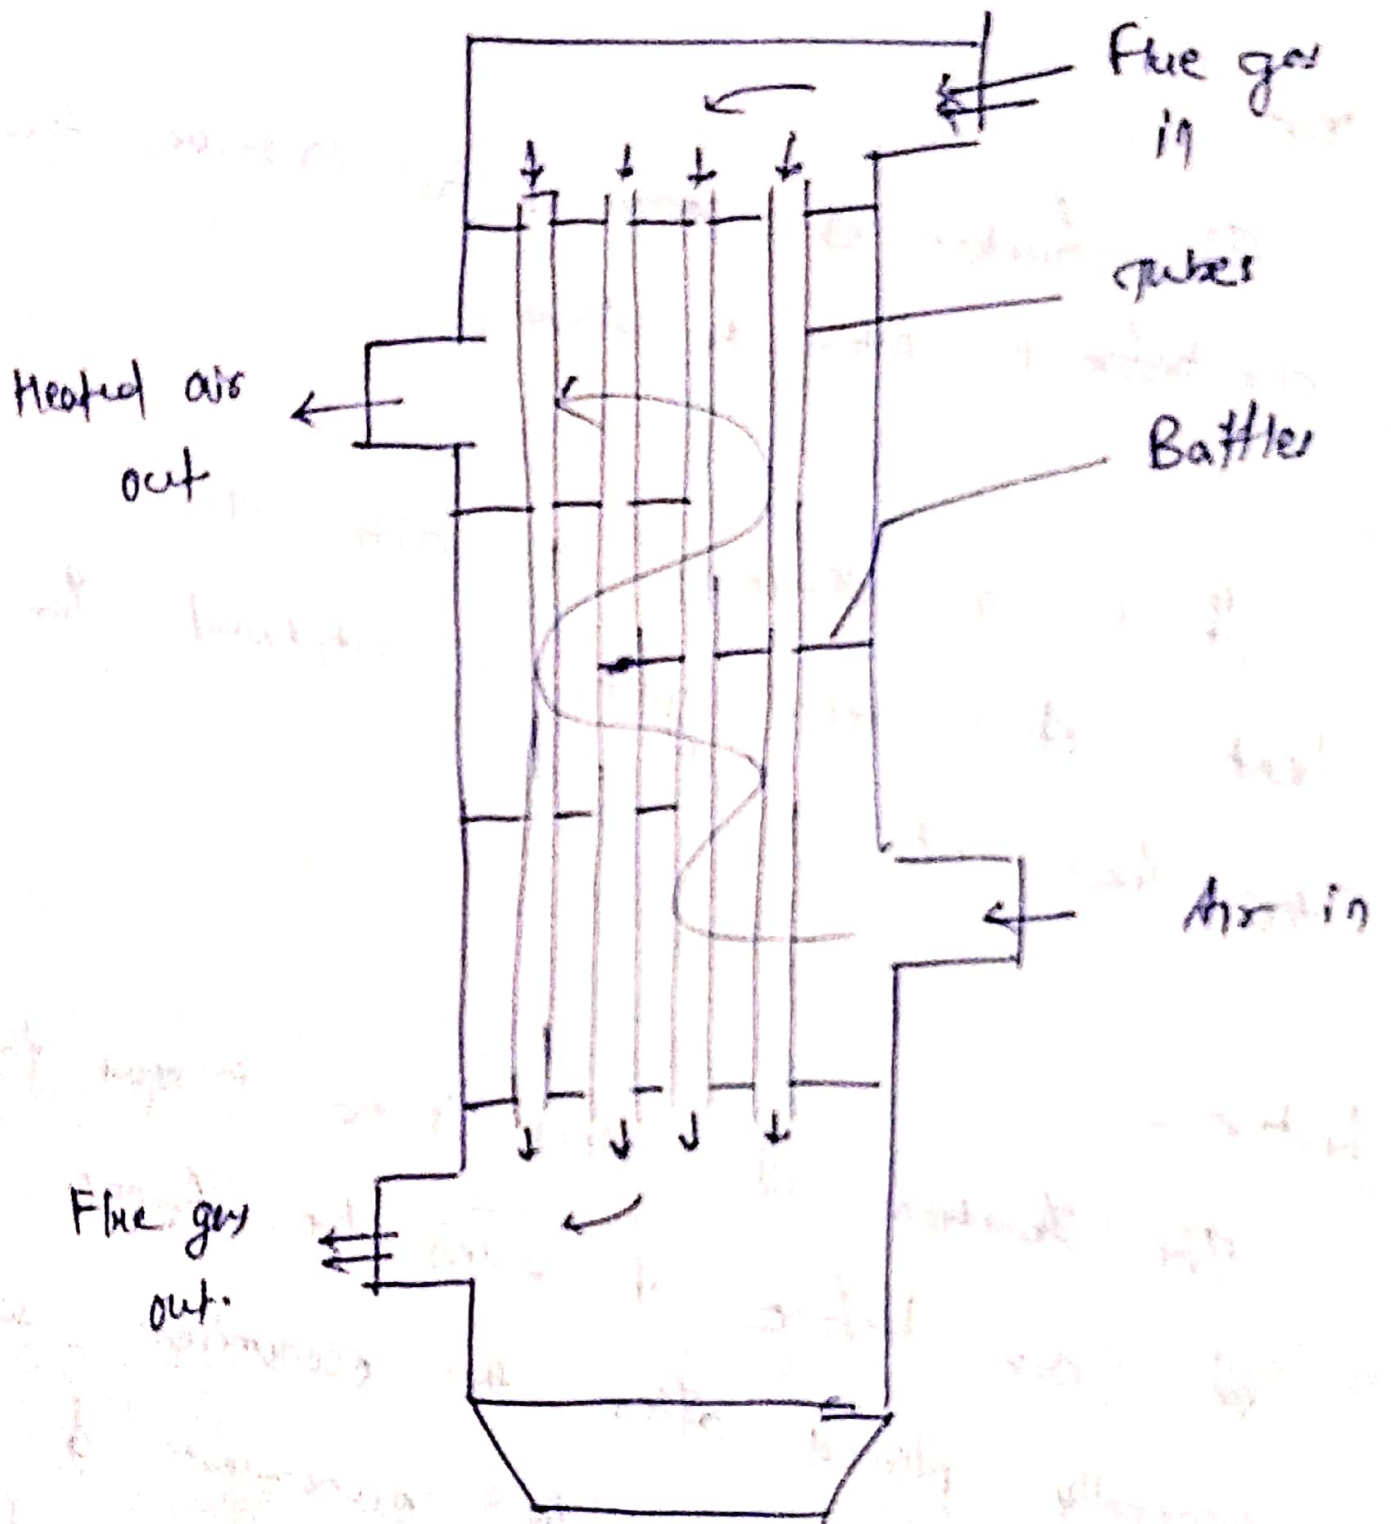 Flue gas
in
Tubes
Baffles
Heated air
out
Air in
Flue gas
out.